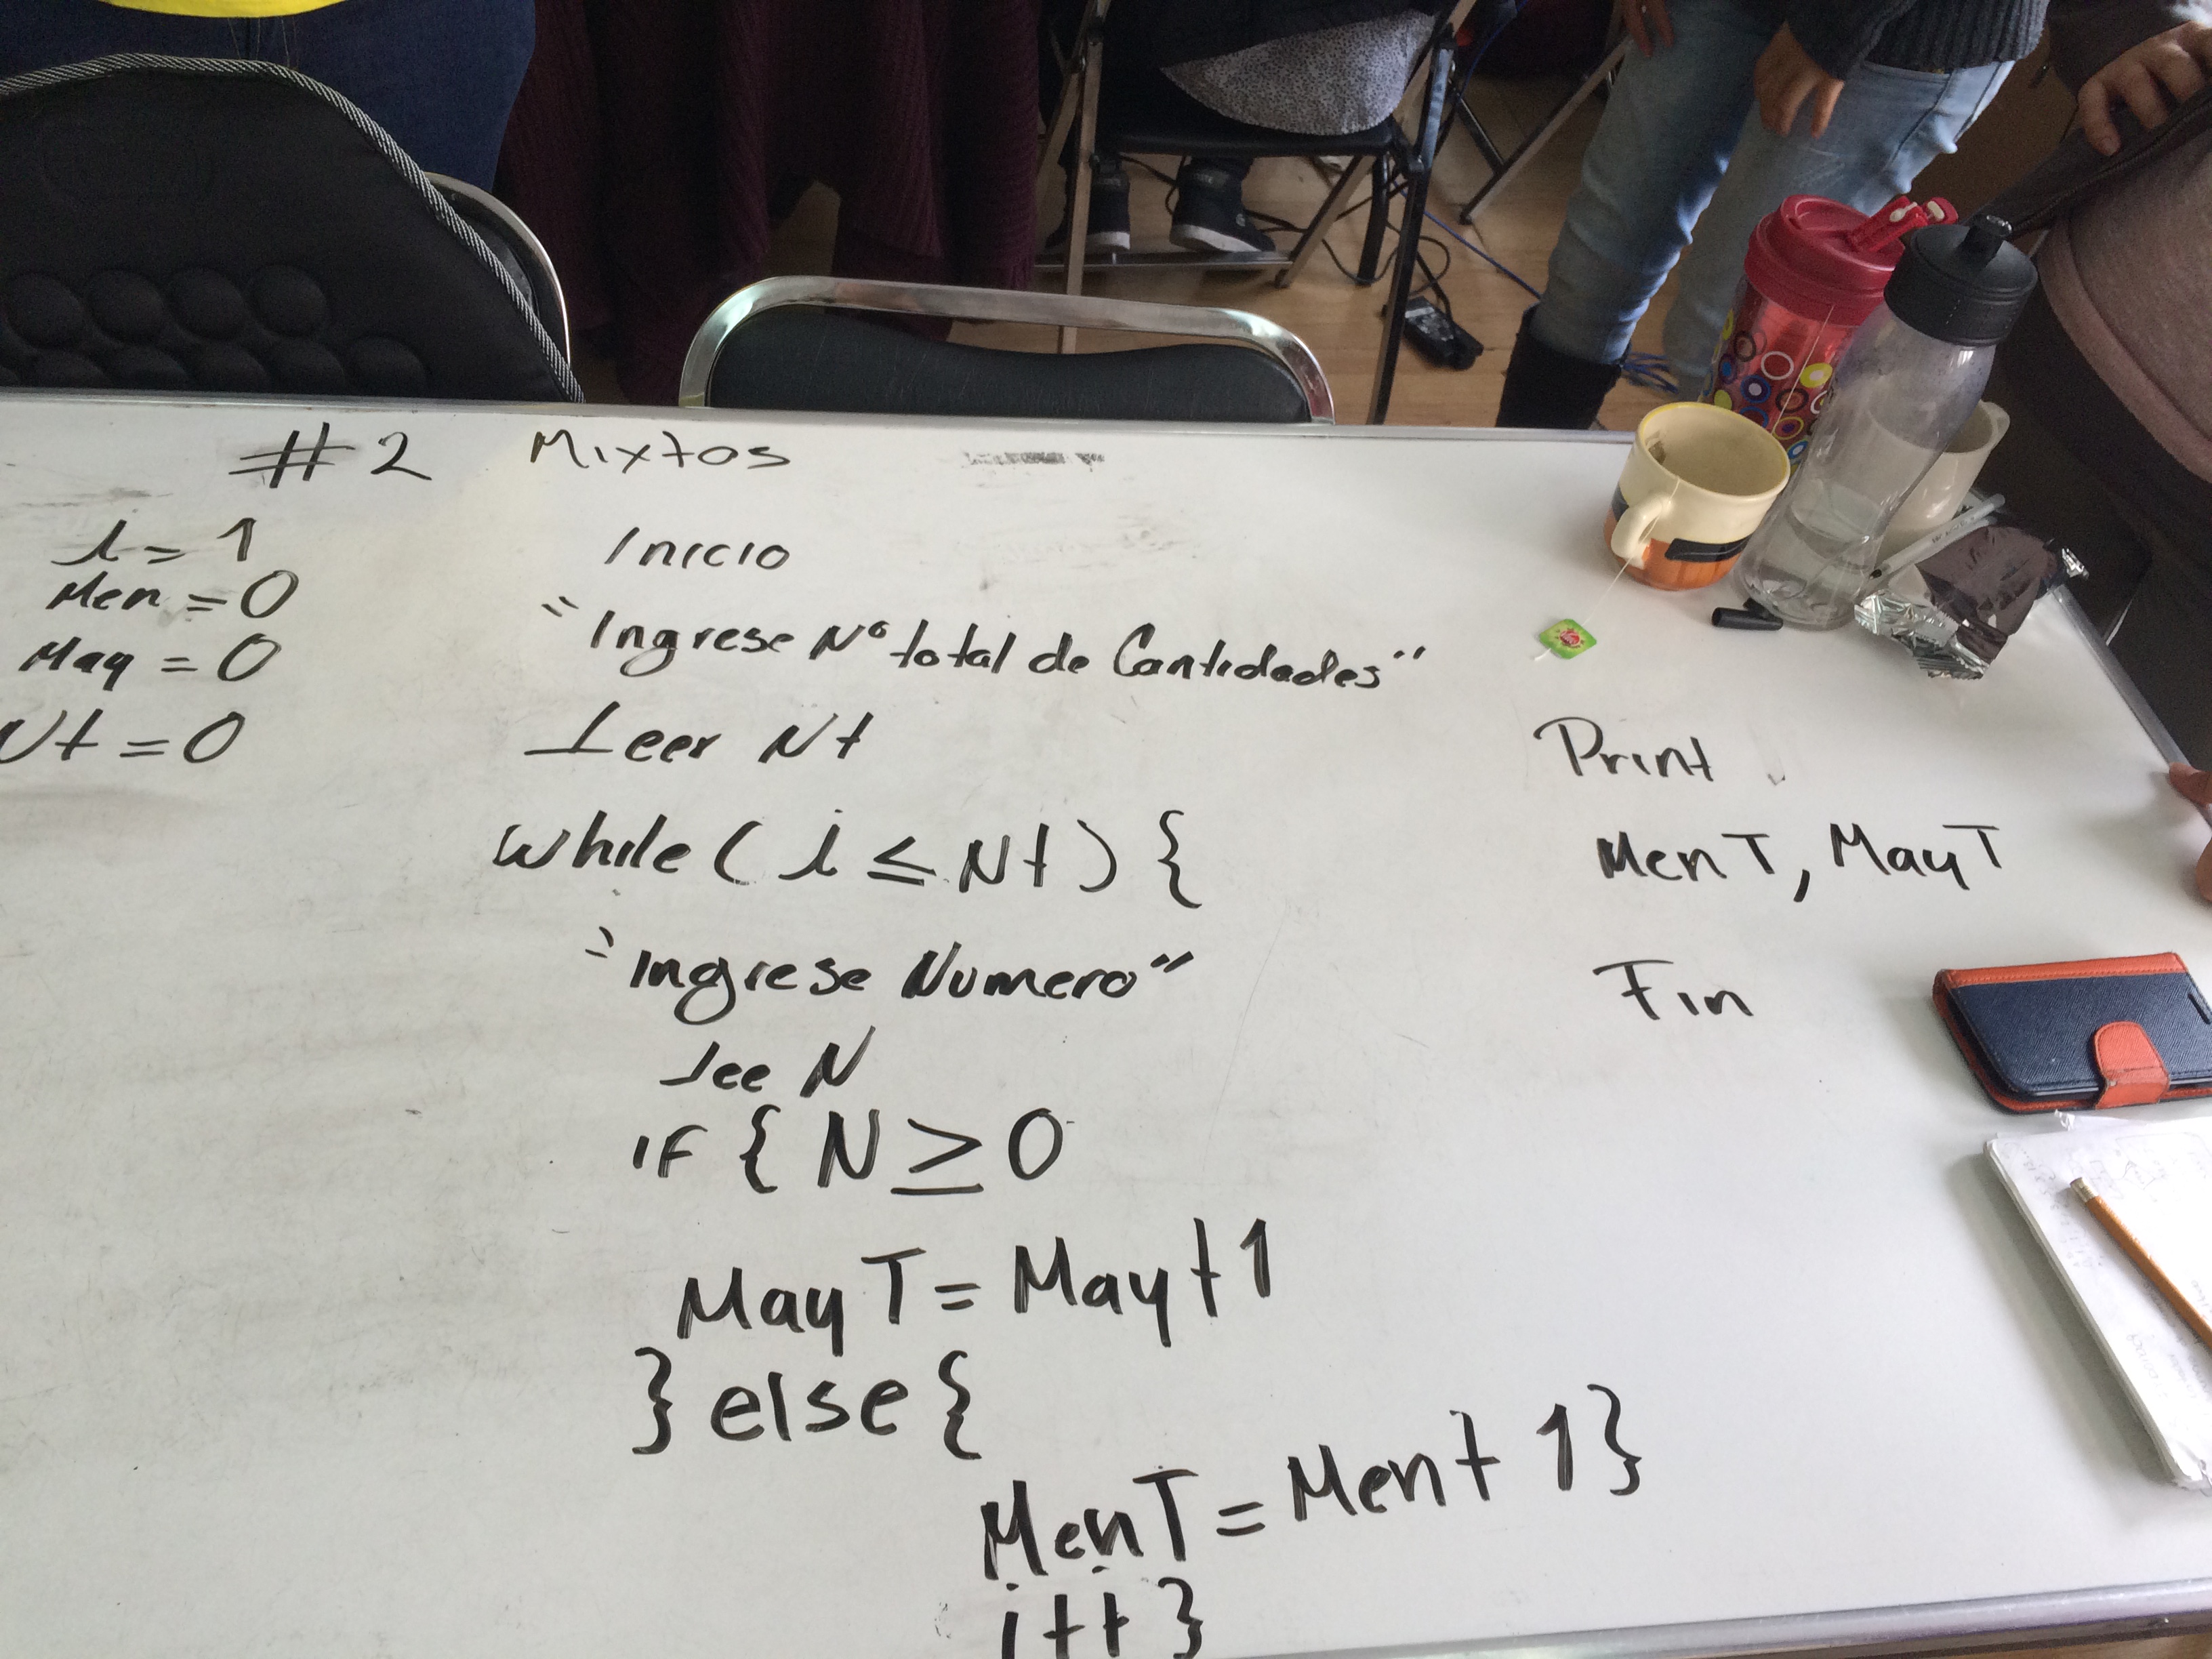 #2 Mixtos
i = 1
Men = 0
May = 0
Nt = 0
Inicio
"Ingrese Nº total de Cantidades"
Leer Nt
while ( i ≤ Nt ) {
"Ingrese Numero"
lee N
if { N ≥ 0
MayT = May+1
} else {
MenT = Men+1}
i++ }
Print
MenT, MayT
Fin